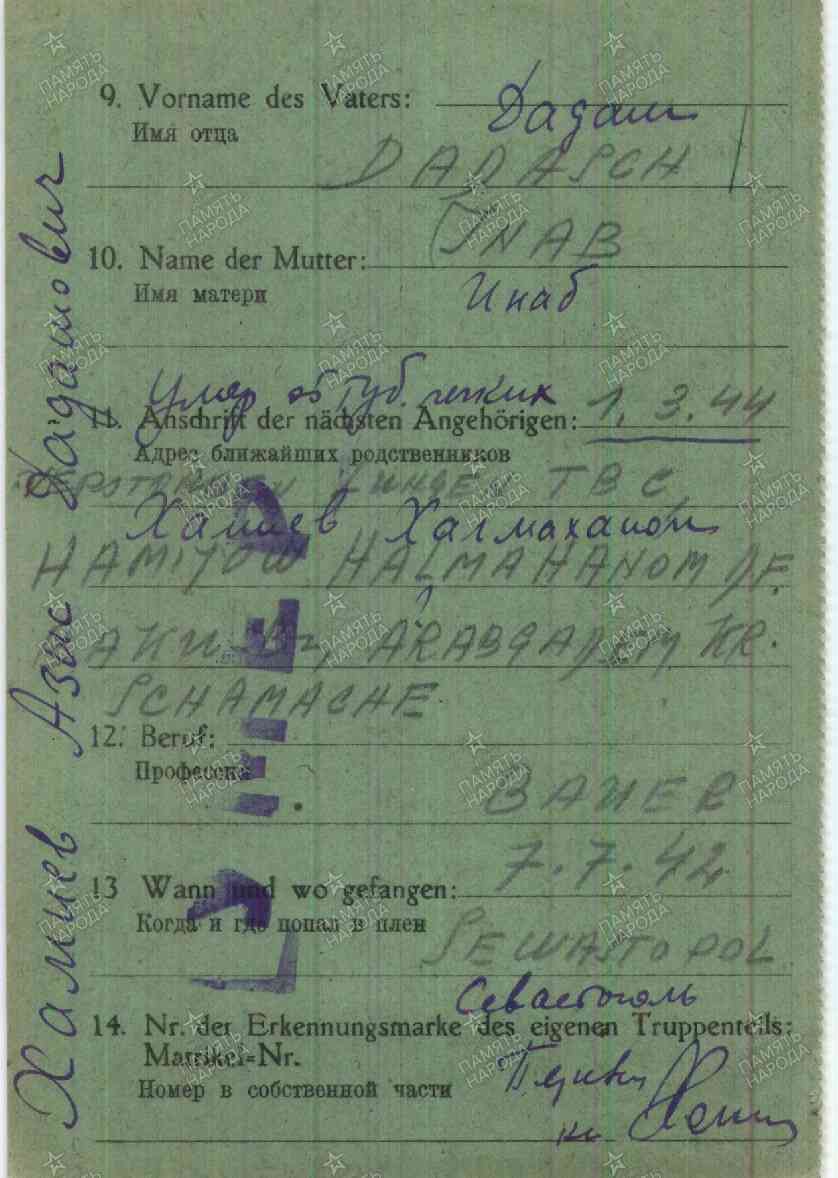 9. Vorname des Vaters:
Имя отца
Дадаш
DADASCH
INAB
10. Name der Mutter:
Имя матери
Инаб
Умер от туб. легких 1.3.44
11. Anschrift der nächsten Angehörigen:
Адрес ближайших родственников
LUNGEN TBC
Хамиев Халмаханом
HAMIJOW HALMAHANOM D/F.
KR.
SCHAMACHE
12. Beruf:
Профессия
BAUER
7.7.42
13 Wann und wo gefangen:
Когда и где попал в плен
SEWASTOPOL
Севастополь
14. Nr. der Erkennungsmarke des eigenen Truppenteils:
Matrikel=Nr.
Номер в собственной части
Хамиев Азис Дадашович
ПАМЯТЬ НАРОДА